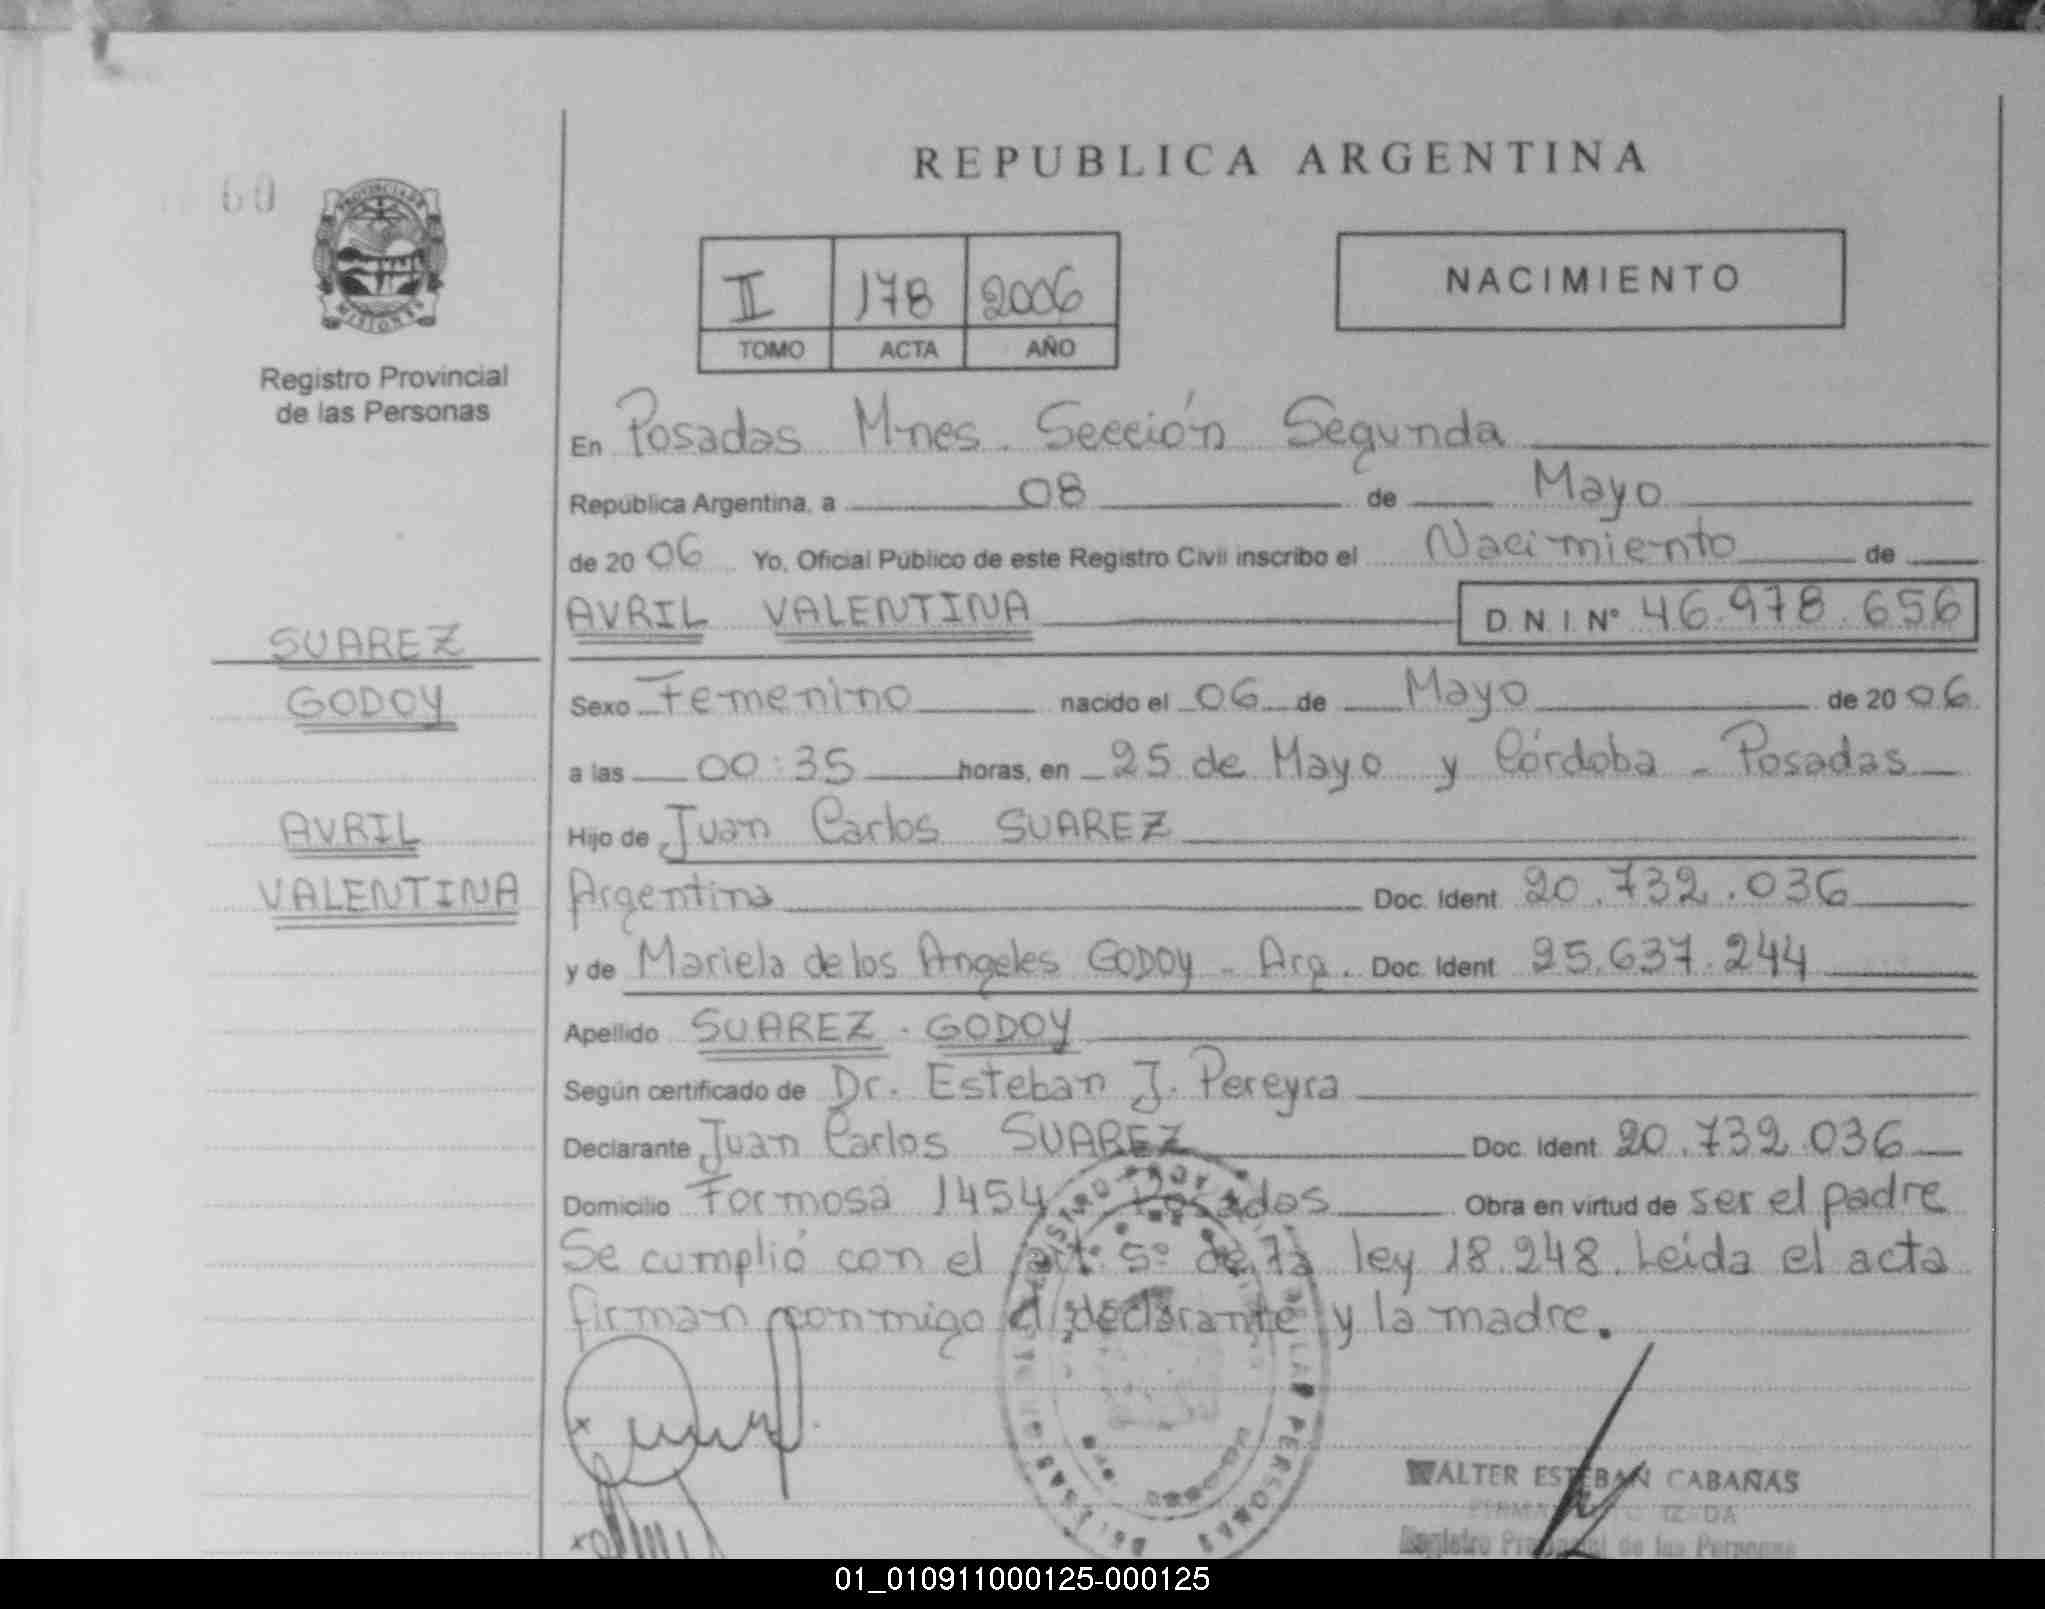 REPUBLICA ARGENTINA
60
PROVINCIA DE
MISIONES
Registro Provincial
de las Personas
II 178 2006
TOMO ACTA AÑO
NACIMIENTO
En Posadas Mnes. Sección Segunda
República Argentina, a 08 de Mayo
de 2006 Yo, Oficial Público de este Registro Civil inscribo el Nacimiento de
AVRIL VALENTINA D.N.I. Nº 46.978.656
SUAREZ
GODOY
Sexo Femenino nacido el 06 de Mayo de 2006
a las 00:35 horas, en 25 de Mayo y Córdoba - Posadas
AVRIL
VALENTINA
Hijo de Juan Carlos SUAREZ
Argentina Doc. Ident. 20.732.036
y de Mariela de los Angeles GODOY - Arg. Doc. Ident. 25.637.244
Apellido SUAREZ - GODOY
Según certificado de Dr. Esteban J. Pereyra
Declarante Juan Carlos SUAREZ Doc. Ident. 20.732.036
Domicilio Formosa 1454 Posadas Obra en virtud de ser el padre
Se cumplió con el art. 5º de la ley 18.248. Leida el acta
firman conmigo el declarante y la madre.
WALTER ESTEBAN CABAÑAS
Registro Provincial de las Personas
01_010911000125-000125